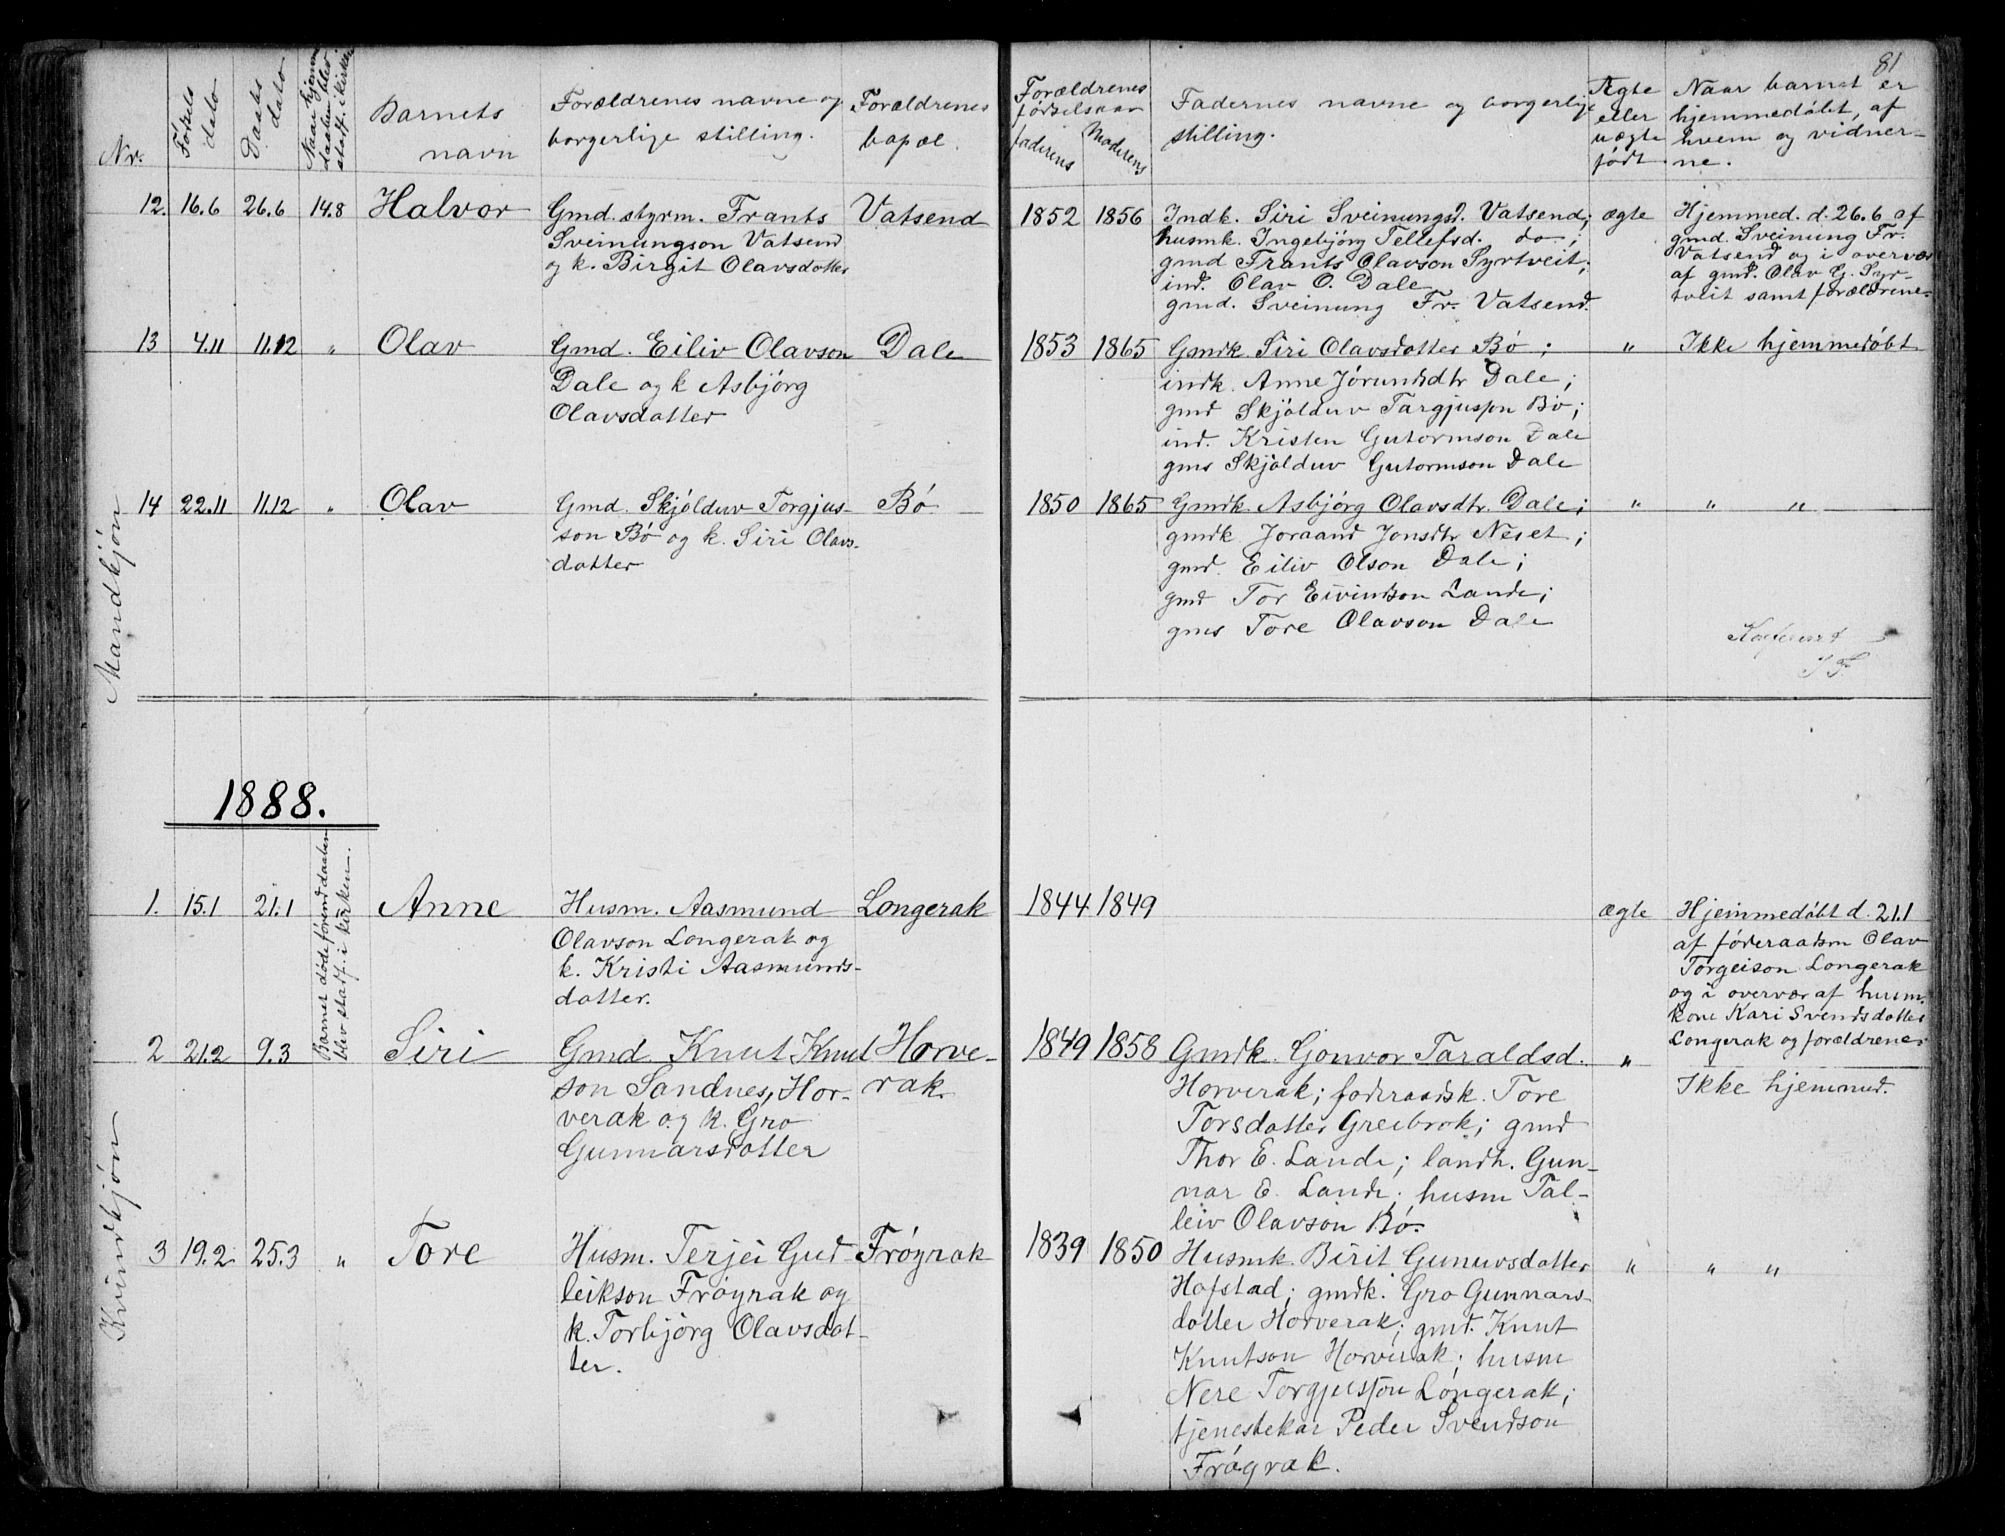 81
Nr.
Fødsels dato
Daabs dato
Naar hjemmedaaben blev stadf. i kirken
Barnets navn
Forældrenes navne og borgerlige stilling.
Forældrenes bopæl.
Forældrenes fødselsaar
faderens
Moderens
Fadernes navne og borgerlige stilling.
Ægte eller uægte født.
Naar barnet er hjemmedøbt, af hvem og vidnerne.
Mandkjøn
12. 16.6 26.6 14.8 Halvor
Gmd. styrm. Frants
Sveinungson Vatsend
og k. Birgit Olavsdatter
Vatsend
1852 1856
Indk. Siri Sveinungsd. Vatsend;
husmk. Ingebjörg Tellefsd. do;
gmd Frants Olavson Syrtveit;
ind. Olav O. Dale
gmd. Sveinung Fr. Vatsend.
ægte
Hjemmed. d. 26.6 af
gmd. Sveinung Fr.
Vatsend og i overvær
af gmd. Olav G. Syr-
tveit samt forældrene.
13 4.11 11.12 " Olav
Gmd. Eiliv Olavson
Dale og k Asbjörg
Olavsdatter
Dale
1853 1865
Gmdk Siri Olavsdatter Bö;
indk. Anne Jórundsdtr Dale;
gmd Skjölduv Targjusson Bö;
ind. Kristen Gutormson Dale
gms Skjölduv Gutormson Dale
" Ikke hjemmedöbt
14 22.11 11.12 " Olav
Gmd. Skjölduv Torgjus-
son Bö og k. Siri Olavs-
datter
Bö
1850 1865
Gmdk. Asbjörg Olavsdtr. Dale;
gmdk Joraand Jonsdtr Neset;
gmd. Eiliv Olson Dale;
gmd Tor Eivindson Lande;
gms Tore Olavson Dale
" " "
1888.
Kvindkjøn
Barnet døde førend daaben
blev stadf. i kirken.
1. 15.1 21.1 Anne
Husm. Aasmund
Olavson Longerak og
k. Kristi Aasmunds-
datter.
Longerak
1844 1849
ægte
Hjemmedöbt d. 21.1
af föderaadsm Olav
Torgeison Longerak
og i overvær af husm.
kone Kari Svendsdatter
Longerak og forældrene.
2 21.2 9.3 Siri
Gmd Knut Knut
son Sandnes, Hor-
verak og k. Gro
Gunnarsdatter
Horve-
rak.
1849 1858
Gmdk. Gonvor Taraldsd.
Horverak; foderaadsk. Tore
Torsdatter Greibrok; gmd
Thor E. Lande; landh. Gun-
nar E. Lande; husm Tal-
leiv Olavson Bö.
" Ikke hjemmed.
3 19.2 25.3 " Tore
Husm. Terjei Gud-
leikson Frøyrak og
k. Torbjörg Olavsdat-
ter.
Frøyrak
1839 1850
Husmk. Birit Gunuvsdatter
Hofstad; gmdk. Gro Gunnars-
datter Horverak; gmd. Knut
Knutson Horverak; husm
Nere Torgjusson Longerak;
tjenestekar Peder Svendson
Frøyrak.
" " "